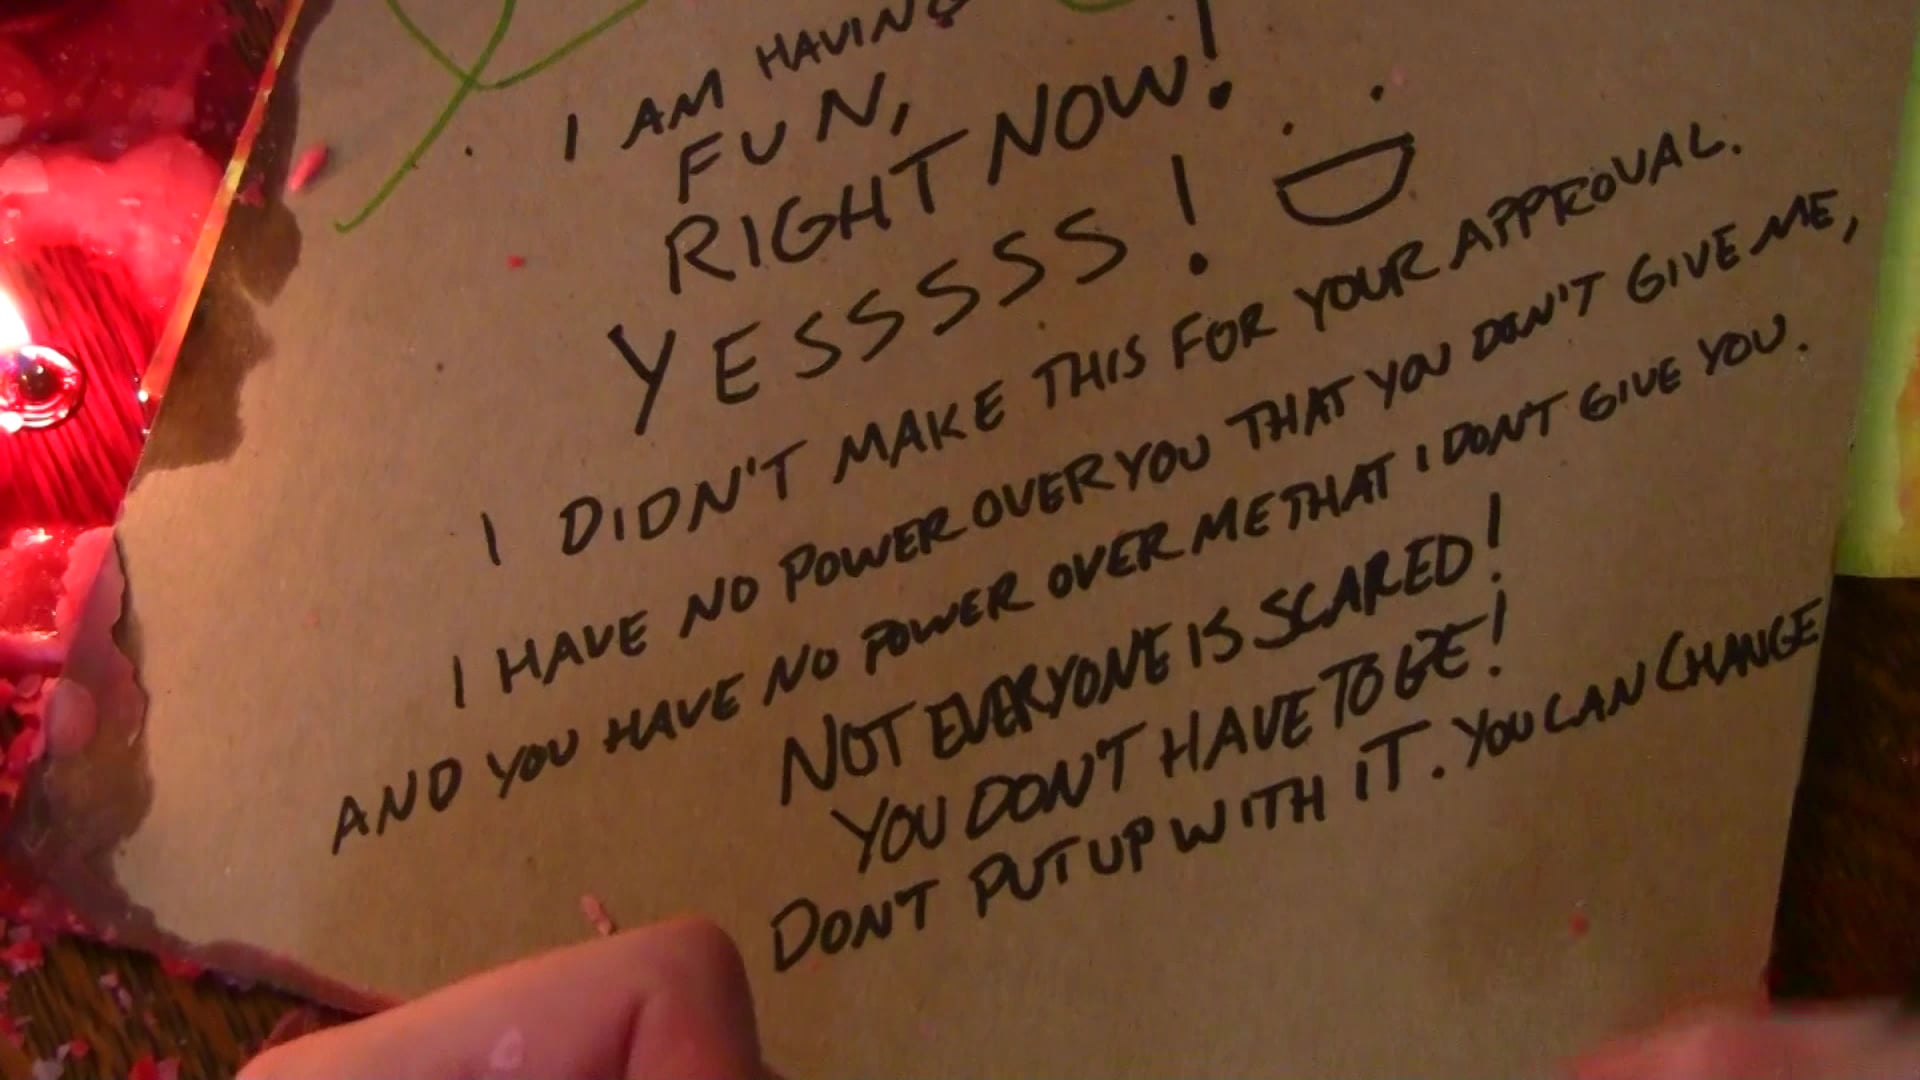 I AM HAVING
FUN,
RIGHT NOW!
YESSSSS!
I DIDN'T MAKE THIS FOR YOUR APPROVAL.
I HAVE NO POWER OVER YOU THAT YOU DON'T GIVE ME,
AND YOU HAVE NO POWER OVER ME THAT I DON'T GIVE YOU.
NOT EVERYONE IS SCARED!
YOU DON'T HAVE TO BE!
DON'T PUT UP WITH IT. YOU CAN CHANGE